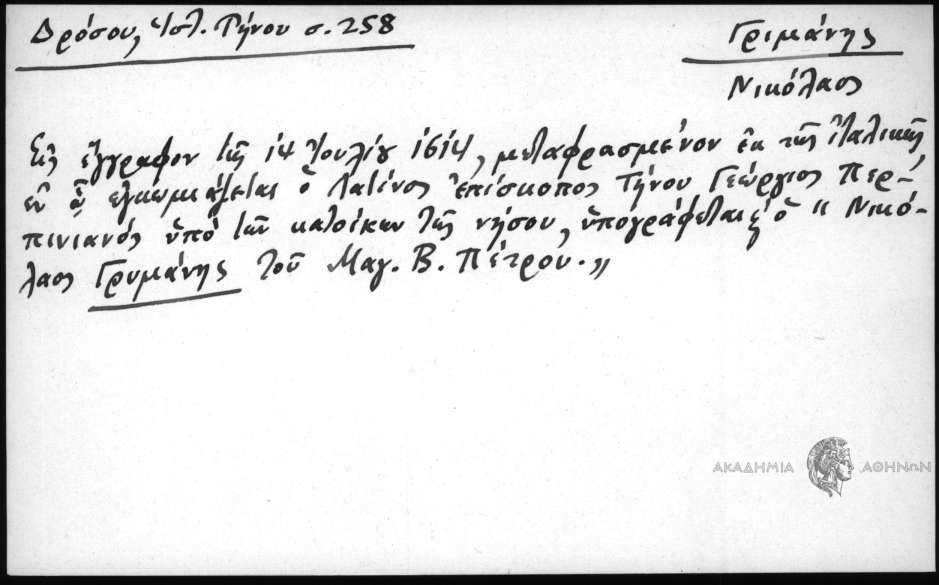 Δρόσου, Ἱστ. Τήνου σ. 258
Γριμάνης
Νικόλαος
Εἰς ἔγγραφον τῆς 14 Ἰουλίου 1614, μεταφρασμένον ἐκ τῆς ἰταλικῆς
ἐν ᾧ ἐγκωμιάζεται ὁ Λατῖνος ἐπίσκοπος Τήνου Γεώργιος Περ-
πινιανός ὑπό τῶν κατοίκων τῆς νήσου, ὑπογράφεται ὁ "Νικό-
λαος Γρυμάνης τοῦ Μαγ. Β. Πέτρου."
ΑΚΑΔΗΜΙΑ ΑΘΗΝΩΝ